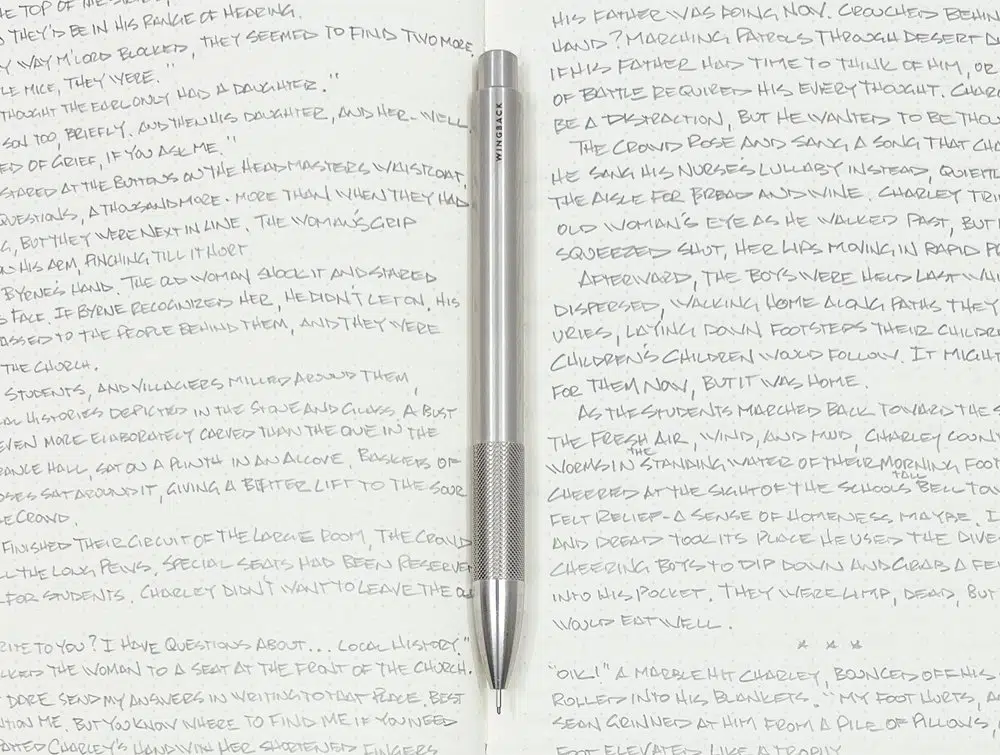 THE TOP OF THE
THEY'D BE IN HIS RANGE OF HEARING.
WAY M'LORD BLOCKED, THEY SEEMED TO FIND TWO MORE.
MICE, THEY WERE."
THOUGHT THE EARL ONLY HAD A DAUGHTER."
SON TOO, BRIEFLY. AND THEN HIS DAUGHTER, AND HER-WELL.
OF GRIEF, IF YOU ASK ME."
STARED AT THE BUTTONS ON THE HEADMASTERS WAISTCOAT.
QUESTIONS, A THOUSAND MORE. MORE THAN WHEN THEY HAD
BUT THEY WERE NEXT IN LINE. THE WOMAN'S GRIP
ON HIS ARM, PINCHING TILL IT HURT
BYRNE'S HAND. THE OLD WOMAN SHOOK IT AND STARED
FACE. IF BYRNE RECOGNIZED HER, HE DIDN'T LET ON. HIS
TO THE PEOPLE BEHIND THEM, AND THEY WERE
THE CHURCH.
STUDENTS, AND VILLAGERS MILLED AROUND THEM,
HISTORIES DEPICTED IN THE STONE AND GLASS. A BUST
EVEN MORE ELABORATELY CARVED THAN THE ONE IN THE
HALL, SAT ON A PLINTH IN AN ALCOVE. BASKETS OF
SAT AROUND IT, GIVING A BITTER LIFT TO THE SOUR
CROWD.
FINISHED THEIR CIRCUIT OF THE LARGE ROOM, THE CROWD
THE LONG PEWS. SPECIAL SEATS HAD BEEN RESERVED
FOR STUDENTS. CHARLEY DIDN'T WANT TO LEAVE THE OLD
TO YOU? I HAVE QUESTIONS ABOUT... LOCAL HISTORY."
THE WOMAN TO A SEAT AT THE FRONT OF THE CHURCH.
DARE SEND MY ANSWERS IN WRITING TO THAT PLACE. BEST
ME. BUT YOU KNOW WHERE TO FIND ME IF YOU NEED
CHARLEY'S HAND WITH HER SHORTENED FINGERS
WINGBACK
HIS FATHER WAS DOING NOW. CROUCHED BEHIN
HAND? MARCHING PATROLS THROUGH DESERT
IF HIS FATHER HAD TIME TO THINK OF HIM, OR
OF BATTLE REQUIRED HIS EVERY THOUGHT. CHAR
BE A DISTRACTION, BUT HE WANTED TO BE THOU
THE CROWD ROSE AND SANG A SONG THAT CHA
HE SANG HIS NURSE'S LULLABY INSTEAD, QUIETL
THE AISLE FOR BREAD AND WINE. CHARLEY TRI
OLD WOMAN'S EYE AS HE WALKED PAST, BUT
SQUEEZED SHUT, HER LIPS MOVING IN RAPID
AFTERWARD, THE BOYS WERE HELD LAST WHI
DISPERSED, WALKING HOME ALONG PATHS THEY
URIES, LAYING DOWN FOOTSTEPS THEIR CHILDRE
CHILDREN'S CHILDREN WOULD FOLLOW. IT MIGHT
FOR THEM NOW, BUT IT WAS HOME.
AS THE STUDENTS MARCHED BACK TOWARD THE S
THE FRESH AIR, WIND, AND MUD, CHARLEY COUN
WORMS IN THE STANDING WATER OF THEIR MORNING FOOT
CHEERED AT THE SIGHT OF THE SCHOOLS TALL BELL TOW
FELT RELIEF-A SENSE OF HOMENESS MAYBE. I
AND DREAD TOOK ITS PLACE HE USED THE DIVE
CHEERING BOYS TO DIP DOWN AND GRAB A FE
INTO HIS POCKET. THEY WERE LIMP, DEAD, BUT
WOULD EAT WELL.
* * *
"OIK!" A MARBLE HIT CHARLEY, BOUNCED OFF HIS
ROLLED INTO HIS BLANKETS. "MY FOOT HURTS, A
SEAN GRINNED AT HIM FROM A PILE OF PILLOWS,
FOOT ELEVATED LIKE A TROPHY